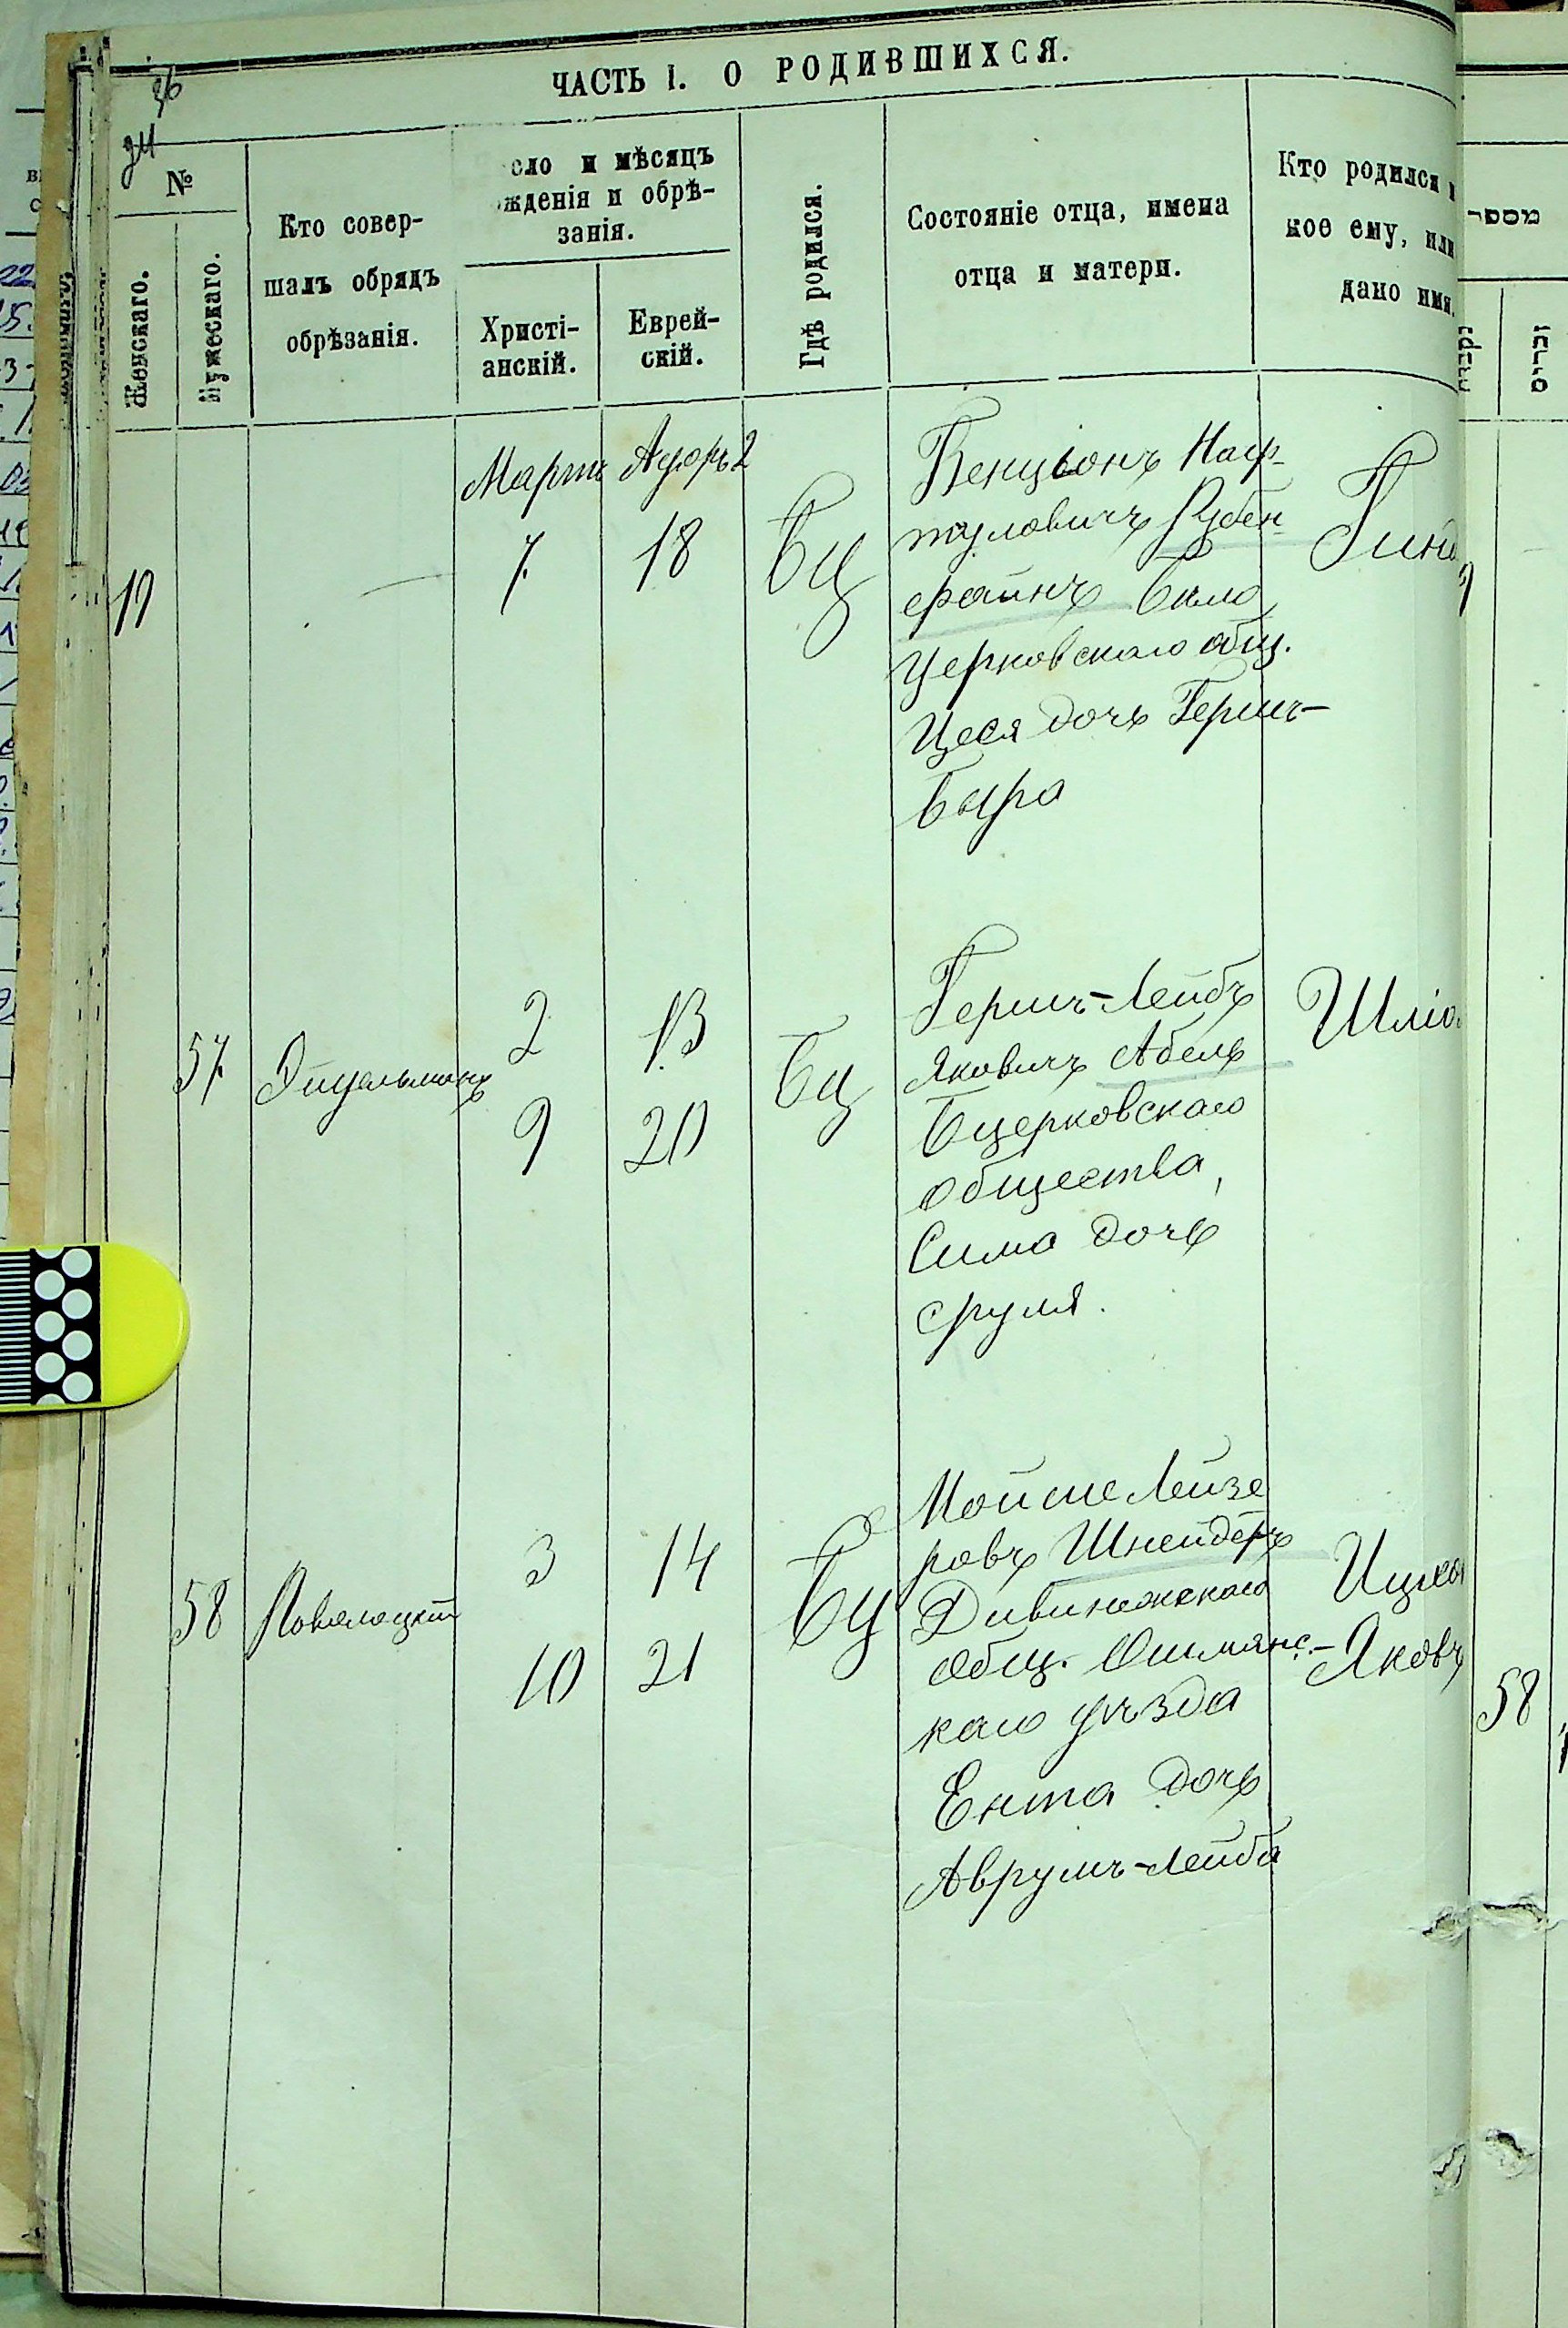 ЧАСТЬ I. О РОДИВШИХСЯ.
36
№
Женскаго.
Мужескаго.
Кто совер-
шалъ обрядъ
обрѣзанія.
сло и мѣсяцъ
жденія и обрѣ-
занія.
Христі-
анскій.
Еврей-
скій.
Гдѣ родился.
Состояніе отца, имена
отца и матери.
Кто родился и
кое ему, или
дано имя.
מספר
Мартъ
Адоръ 2
7.
18
БЦ
Бенціонъ Наф-
туловичъ Рубен-
файнъ Бѣло
Церковскаго общ.
Цеся дочь Гершъ-
Бера
57
Эйдельманъ
2
13
9
20
БЦ
Гершъ-Лейбъ
Яковичъ Абель
Бцерковскаго
общества,
Сима дочь
Сруля.
Шліо
58
Поволоцкій
3
14
10
21
БЦ
Мойше Лейзе
ровъ Шнейдеръ
Дивинежскаго
общ. Ошмянс-
каго уѣзда
Ента дочь
Аврумъ-Лейба
Ицхо
-Яковъ
58